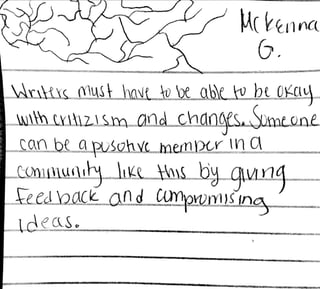 McKenna
G.
Writers must have to be able to be okay
with critizism and changes. Someone
can be a pusotive member in a
community like this by giving
feedback and compromising
ideas.